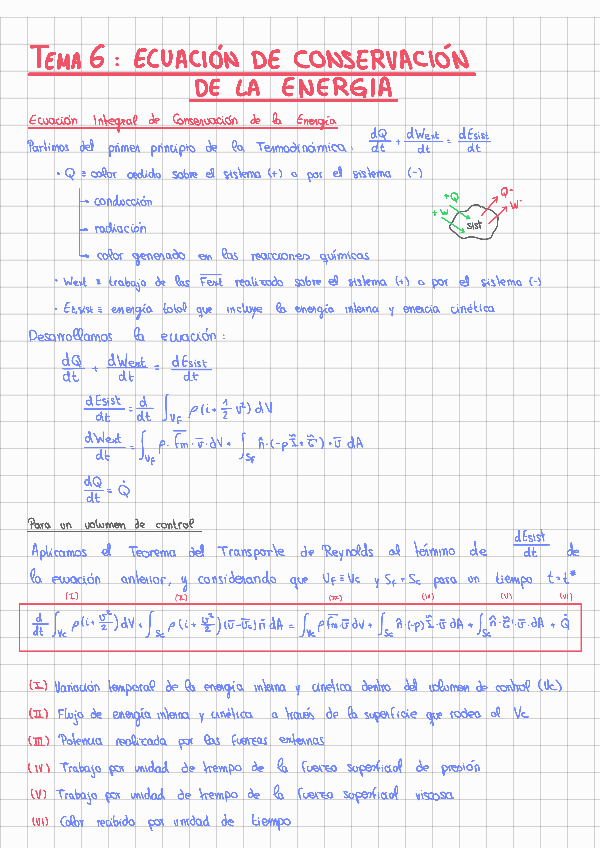 TEMA 6: ECUACIÓN DE CONSERVACIÓN
DE LA ENERGIA
Ecuación Integral de Conservación de la Energía
Partimos del primer principio de la Termodinámica: dQ/dt + dWext/dt = dEsist/dt
· Q ≡ calor cedido sobre el sistema (+) o por el sistema (-)
→ conducción
→ radiación
→ calor generado en las reacciones químicas
+Q Q-
+W W-
sist
· Wext ≡ trabajo de las Fext realizado sobre el sistema (+) o por el sistema (-)
· Et,sist ≡ energía total que incluye la energía interna y enercia cinética
Desarrollamos la ecuación:
dQ/dt + dWext/dt = dEsist/dt
dEsist/dt = d/dt ∫Vf ρ(i + 1/2 v²) dV
dWext/dt = ∫Vf ρ · fm · v̄ · dV + ∫Sf n̄ · (-p I + τ') · v̄ dA
dQ/dt = Q̇
Para un volumen de control
Aplicamos el Teorema del Transporte de Reynolds al término de dEsist/dt de
la ecuación anterior, y considerando que Vf ≡ Vc y Sf = Sc para un tiempo t = t*
(I) (II) (III) (IV) (V) (VI)
d/dt ∫Vc ρ(i + v²/2) dV + ∫Sc ρ(i + v²/2)(v̄ - v̄c) n̄ dA = ∫Vc ρ fm · v̄ dV + ∫Sc n̄(-p) I · v̄ dA + ∫Sc n̄ · τ' · v̄ · dA + Q̇
(I) Variación temporal de la energía interna y cinética dentro del volumen de control (Vc)
(II) Flujo de energía interna y cinética a través de la superficie que rodea al Vc
(III) Potencia realizada por las fuerzas externas
(IV) Trabajo por unidad de tiempo de la fuerza superficial de presión
(V) Trabajo por unidad de tiempo de la fuerza superficial viscosa
(VI) Calor recibido por unidad de tiempo